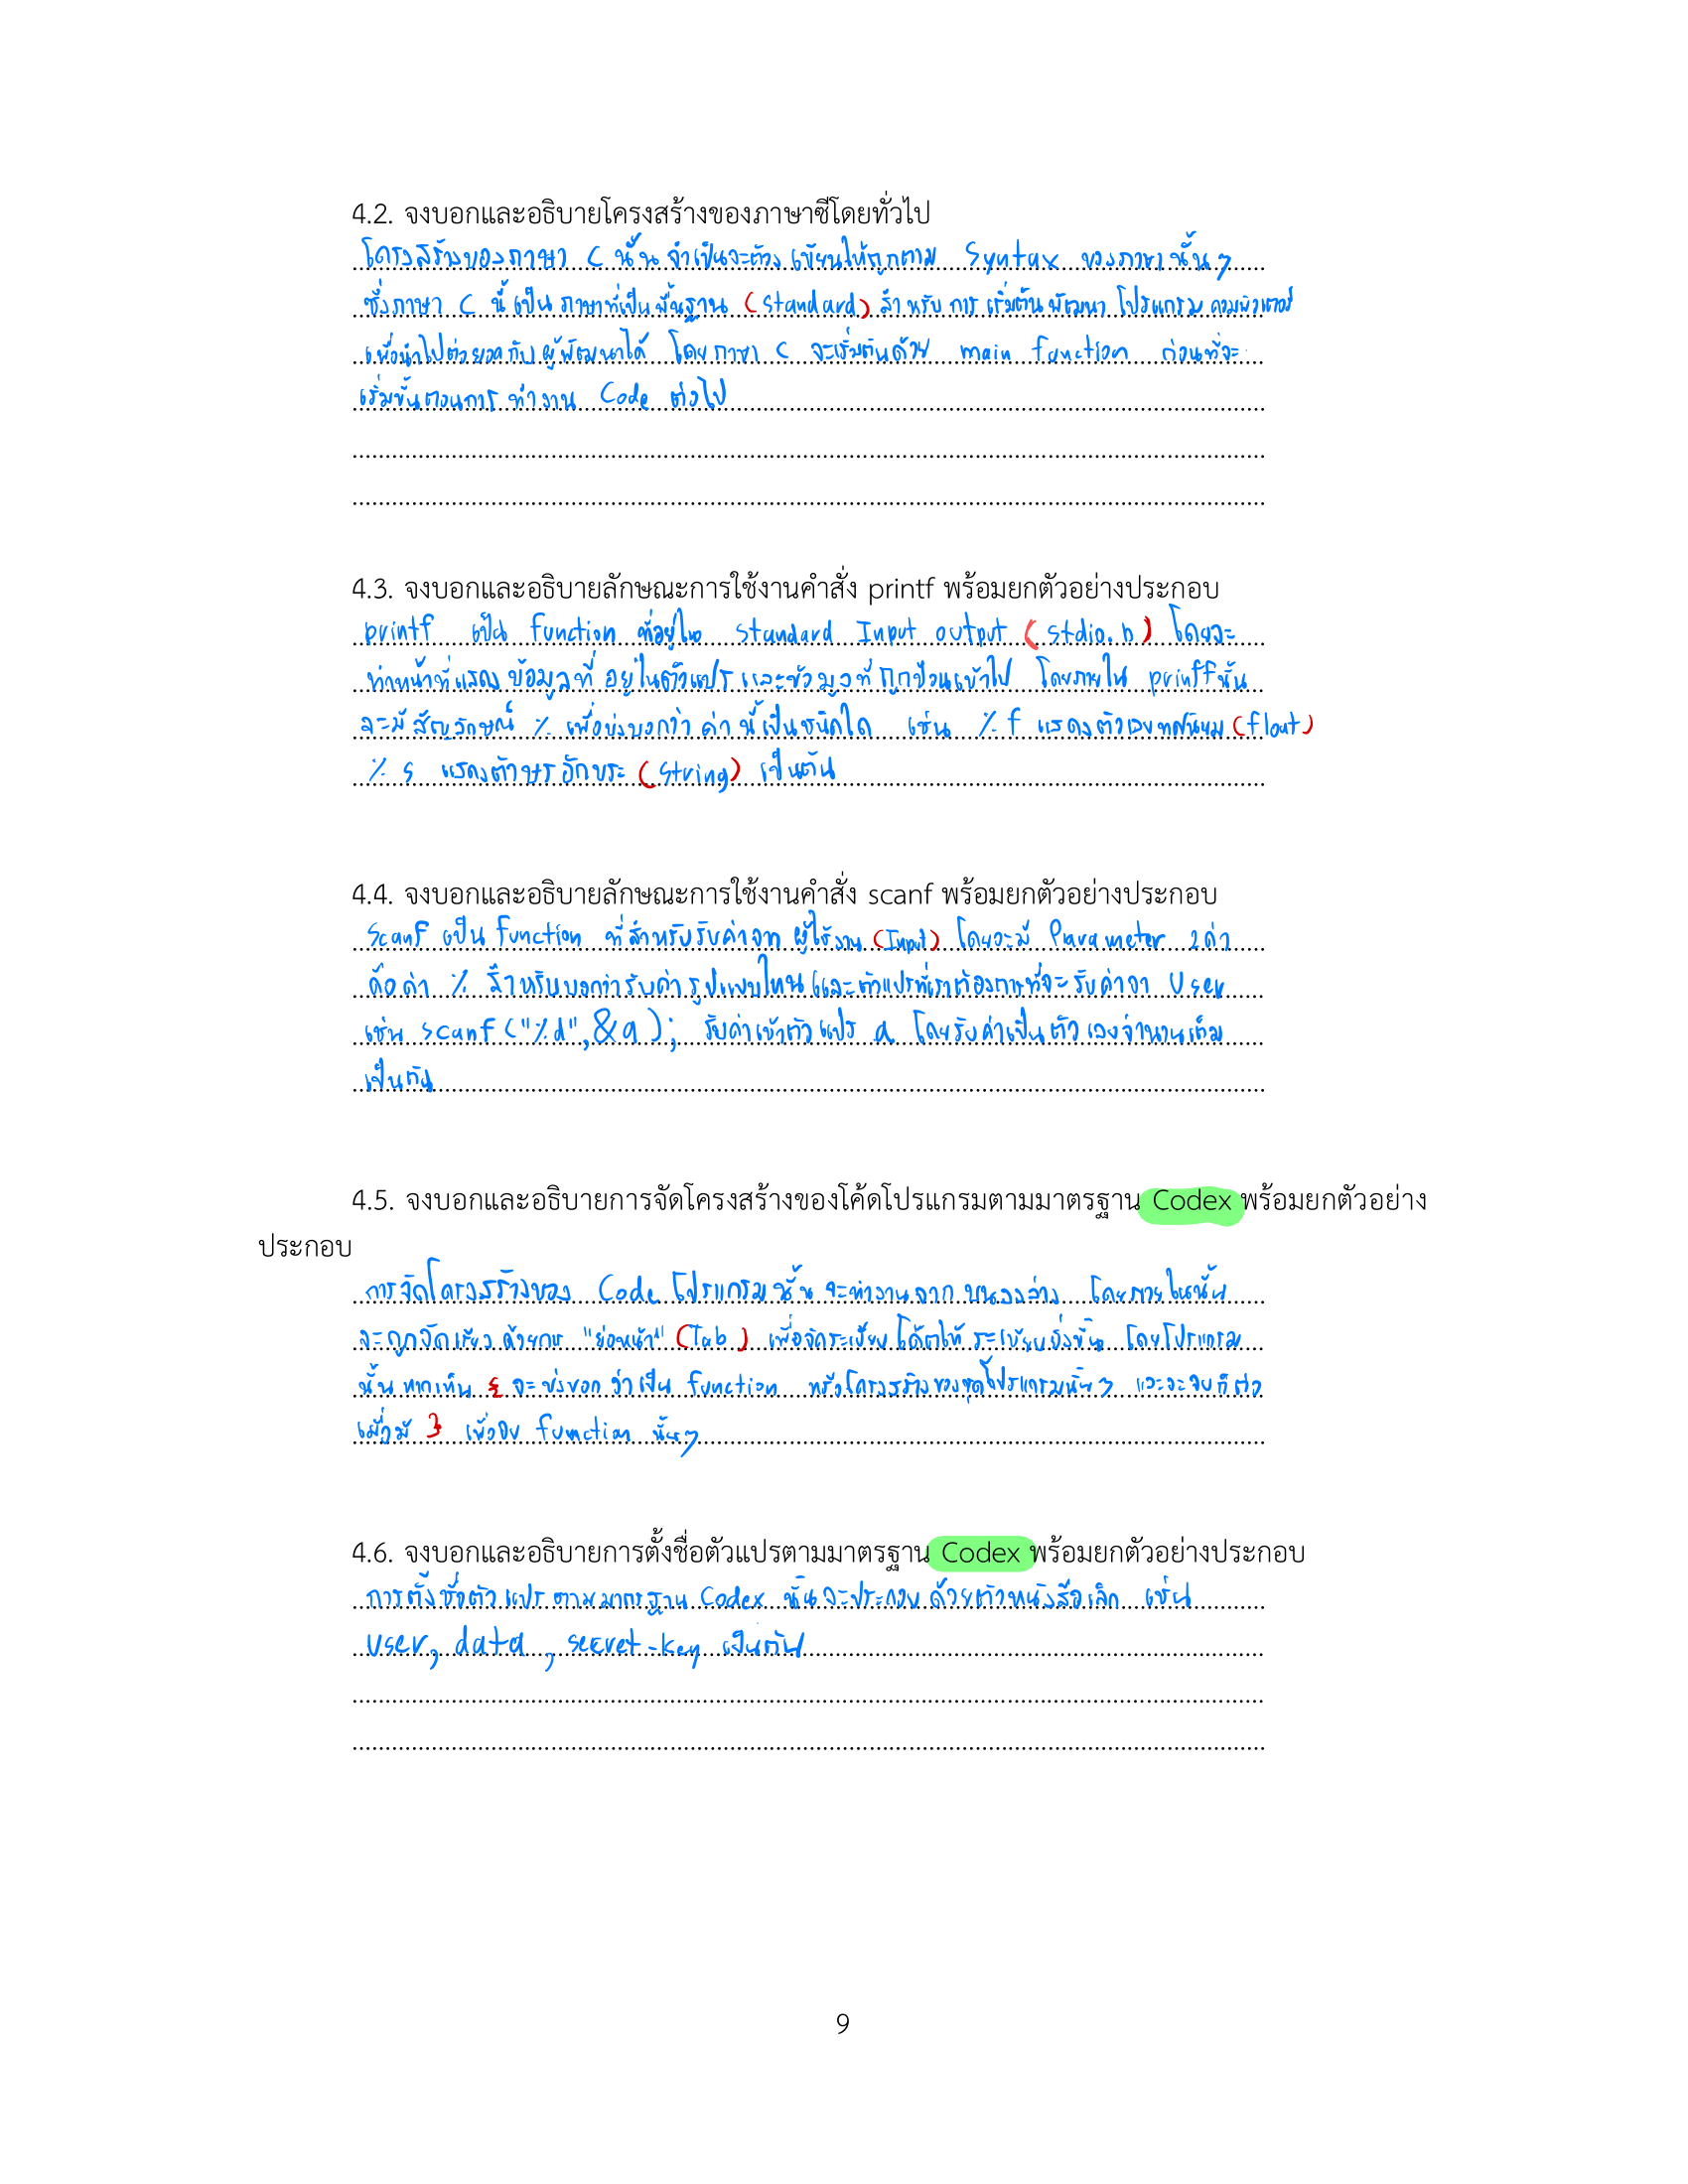 4.2. จงบอกและอธิบายโครงสร้างของภาษาซีโดยทั่วไป
โครงสร้างของภาษา C นั้น จำเป็นจะต้อง เขียนให้ถูกตาม Syntax ของภาษานั้นๆ
ซึ่งภาษา C นี้ เป็น ภาษาที่เป็นพื้นฐาน (Standard) สำหรับ การ เริ่มต้น พัฒนา โปรแกรม คอมพิวเตอร์
เพื่อนำไปต่อยอดกับ ผู้พัฒนาได้ โดย ภาษา C จะเริ่มต้นด้วย main function ก่อนที่จะ
เริ่มขั้นตอนการ ทำงาน Code ต่อไป
4.3. จงบอกและอธิบายลักษณะการใช้งานคำสั่ง printf พร้อมยกตัวอย่างประกอบ
printf เป็น function ที่อยู่ใน Standard Input output (stdio.h) โดยจะ
ทำหน้าที่แสดง ข้อมูลที่ อยู่ในตัวแปร และข้อมูลที่ ถูกป้อนเข้าไป โดยภายใน printf นั้น
จะมี สัญลักษณ์ % เพื่อบ่งบอกว่า ค่า นี้เป็นชนิดใด เช่น % f แสดงตัวเลขทศนิยม (float)
% s แสดงตัวอักษร อักขระ (String) เป็นต้น
4.4. จงบอกและอธิบายลักษณะการใช้งานคำสั่ง scanf พร้อมยกตัวอย่างประกอบ
Scanf เป็น function ที่สำหรับรับค่าจาก ผู้ใช้งาน (Input) โดยจะมี Parameter 2 ค่า
คือ ค่า % สำหรับบอกว่ารับค่า รูปแบบไหน และตัวแปรที่เราต้องการที่จะ รับค่าจา User
เช่น scanf ("%d",&a); รับค่าเข้าตัวแปร a โดยรับค่าเป็น ตัวเลขจำนวนเต็ม
เป็นต้น
4.5. จงบอกและอธิบายการจัดโครงสร้างของโค้ดโปรแกรมตามมาตรฐาน Codex พร้อมยกตัวอย่าง
ประกอบ
การจัดโครงสร้างของ Code โปรแกรม นั้น จะทำงานจาก บนลงล่าง โดยภายในนั้น
จะถูกจัดเรียง ด้วยการ "ย่อหน้า" (Tab) เพื่อจัดระเบียบ โค้ดให้ ระเบียบยิ่งขึ้น โดยโปรแกรม
นั้น หากเห็น { จะ บ่งบอก ว่าเป็น function หรือโครงสร้างของชุดโปรแกรมนั้นๆ และจะจบก็ต่อ
เมื่อมี } เพื่อจบ function นั้นๆ
4.6. จงบอกและอธิบายการตั้งชื่อตัวแปรตามมาตรฐาน Codex พร้อมยกตัวอย่างประกอบ
การตั้งชื่อตัวแปร ตามมาตรฐาน Codex นั้น จะประกอบ ด้วยตัวหนังสือเล็ก เช่น
user, data, secret-key เป็นต้น
9